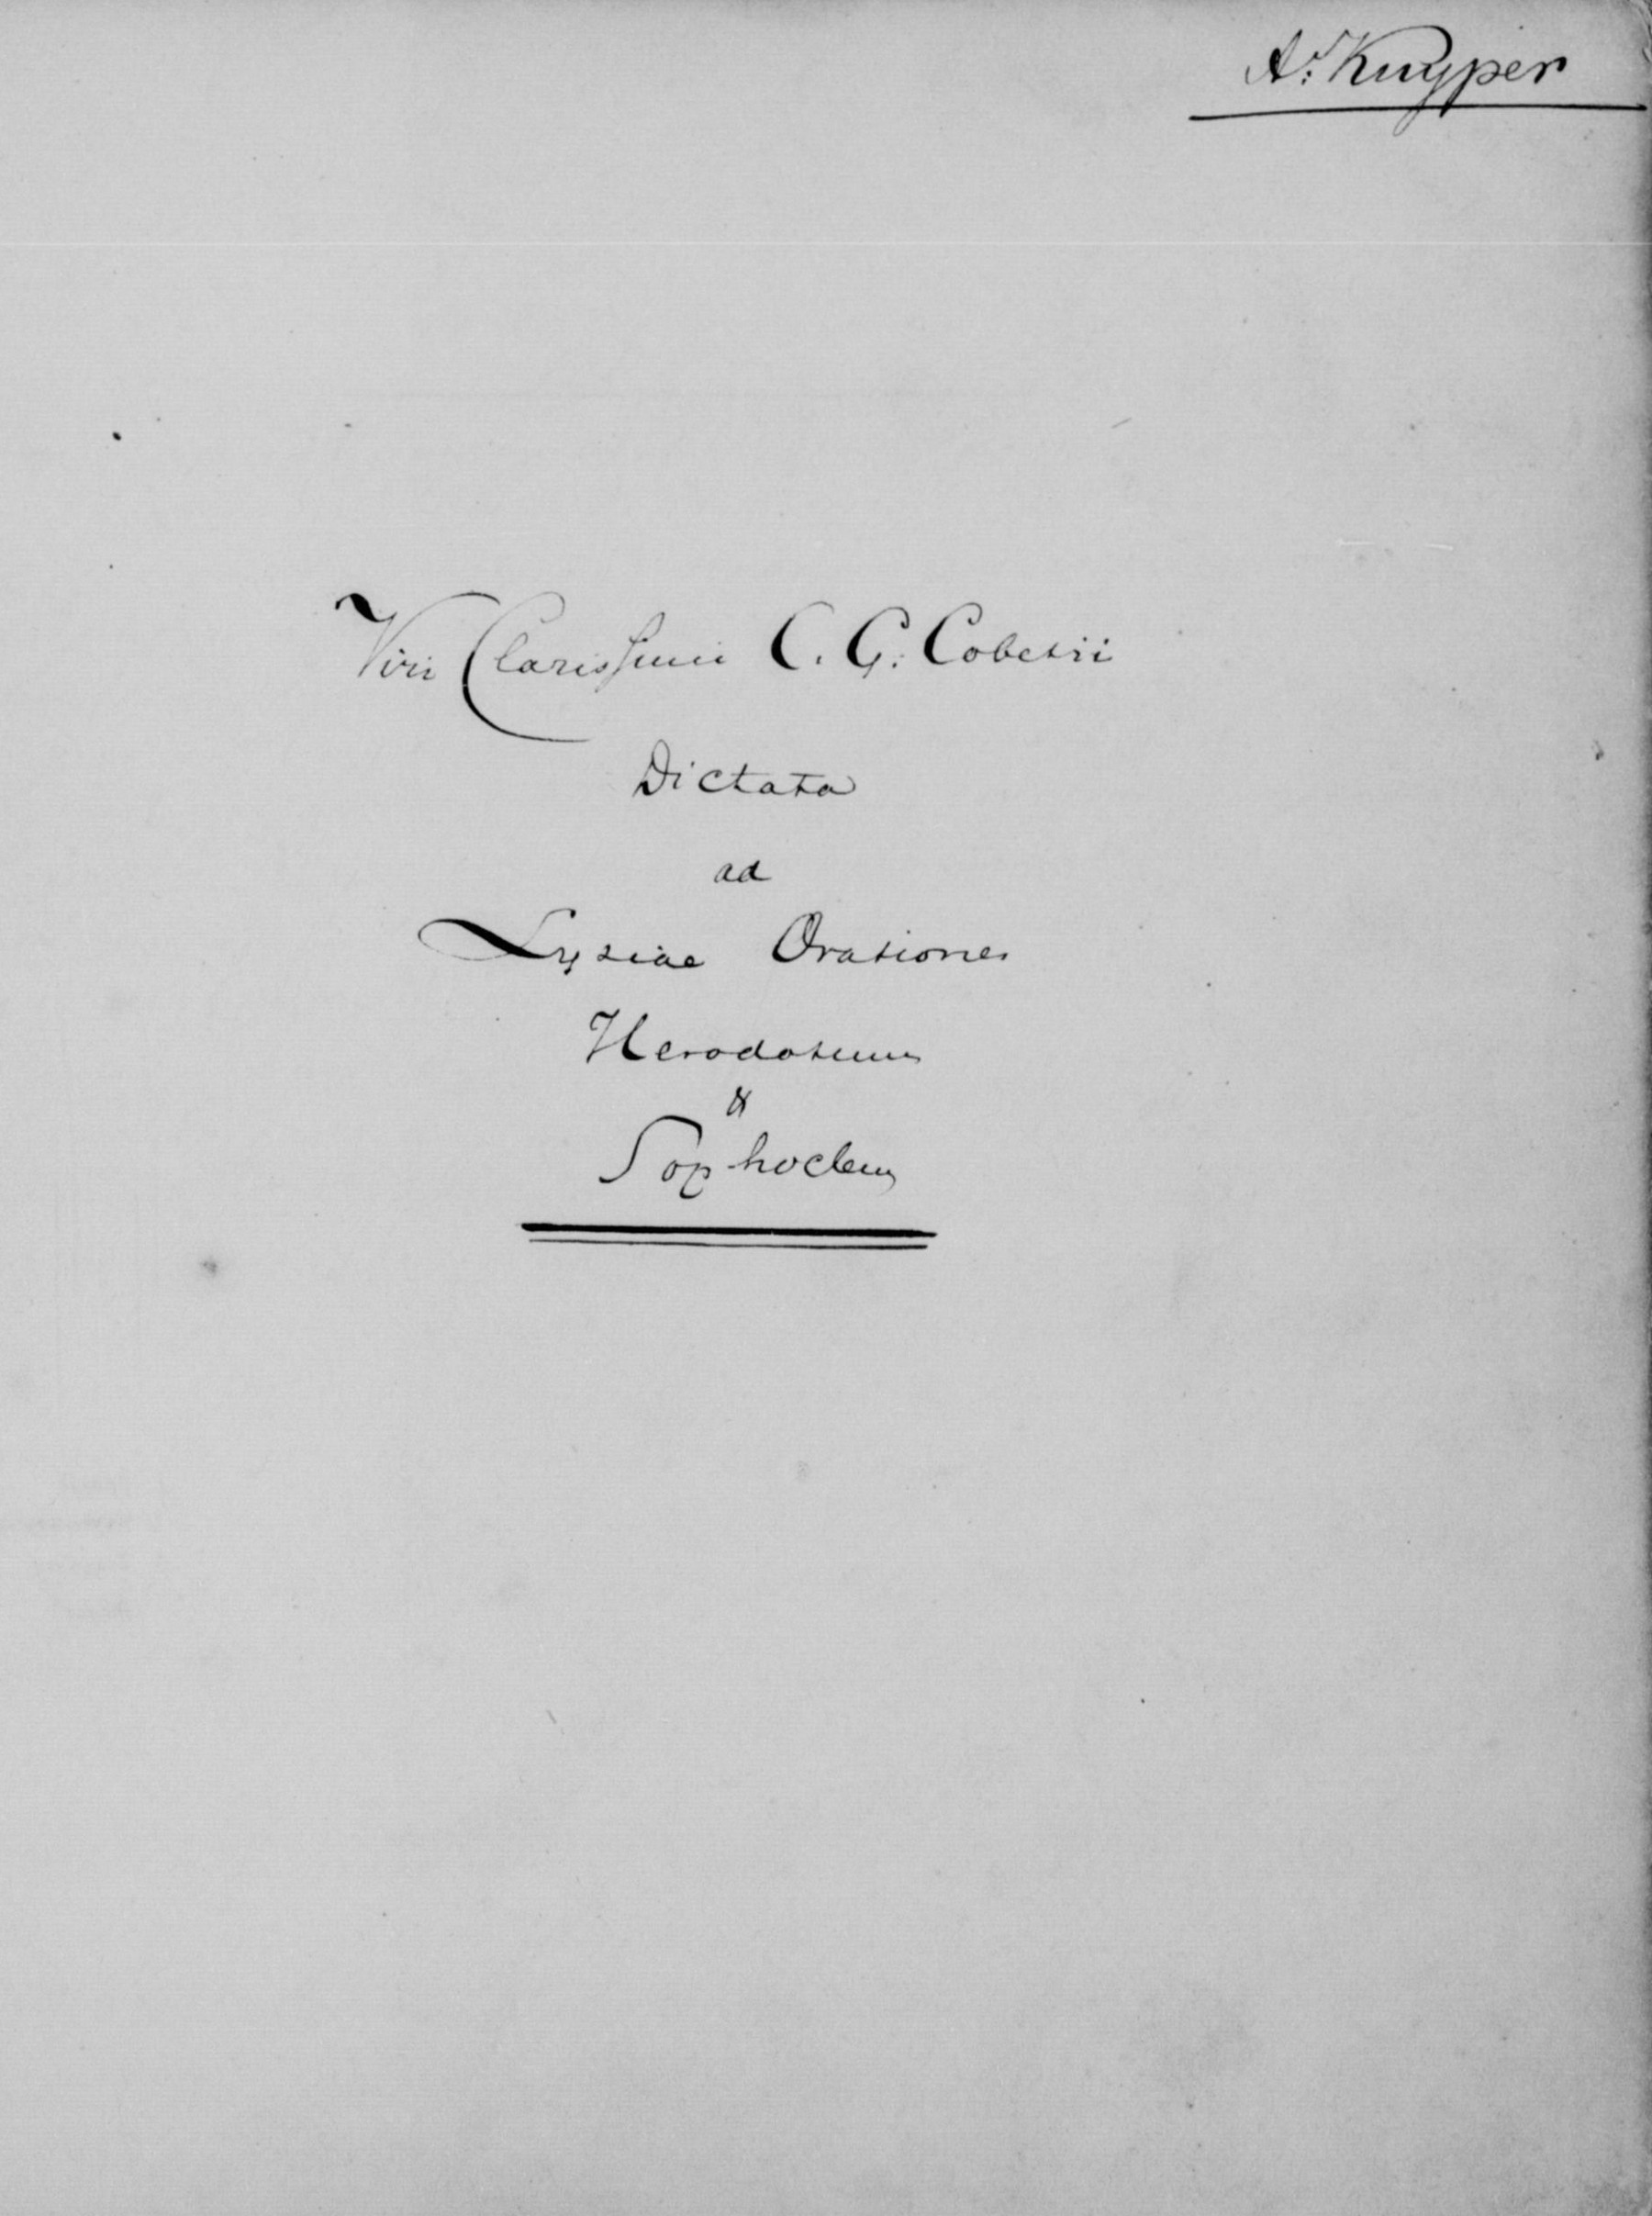 A. Kuyper
Viri Clarissimi C. G. Cobetii
Dictata
ad
Lysiae Orationes
Herodotum
&
Sophoclem